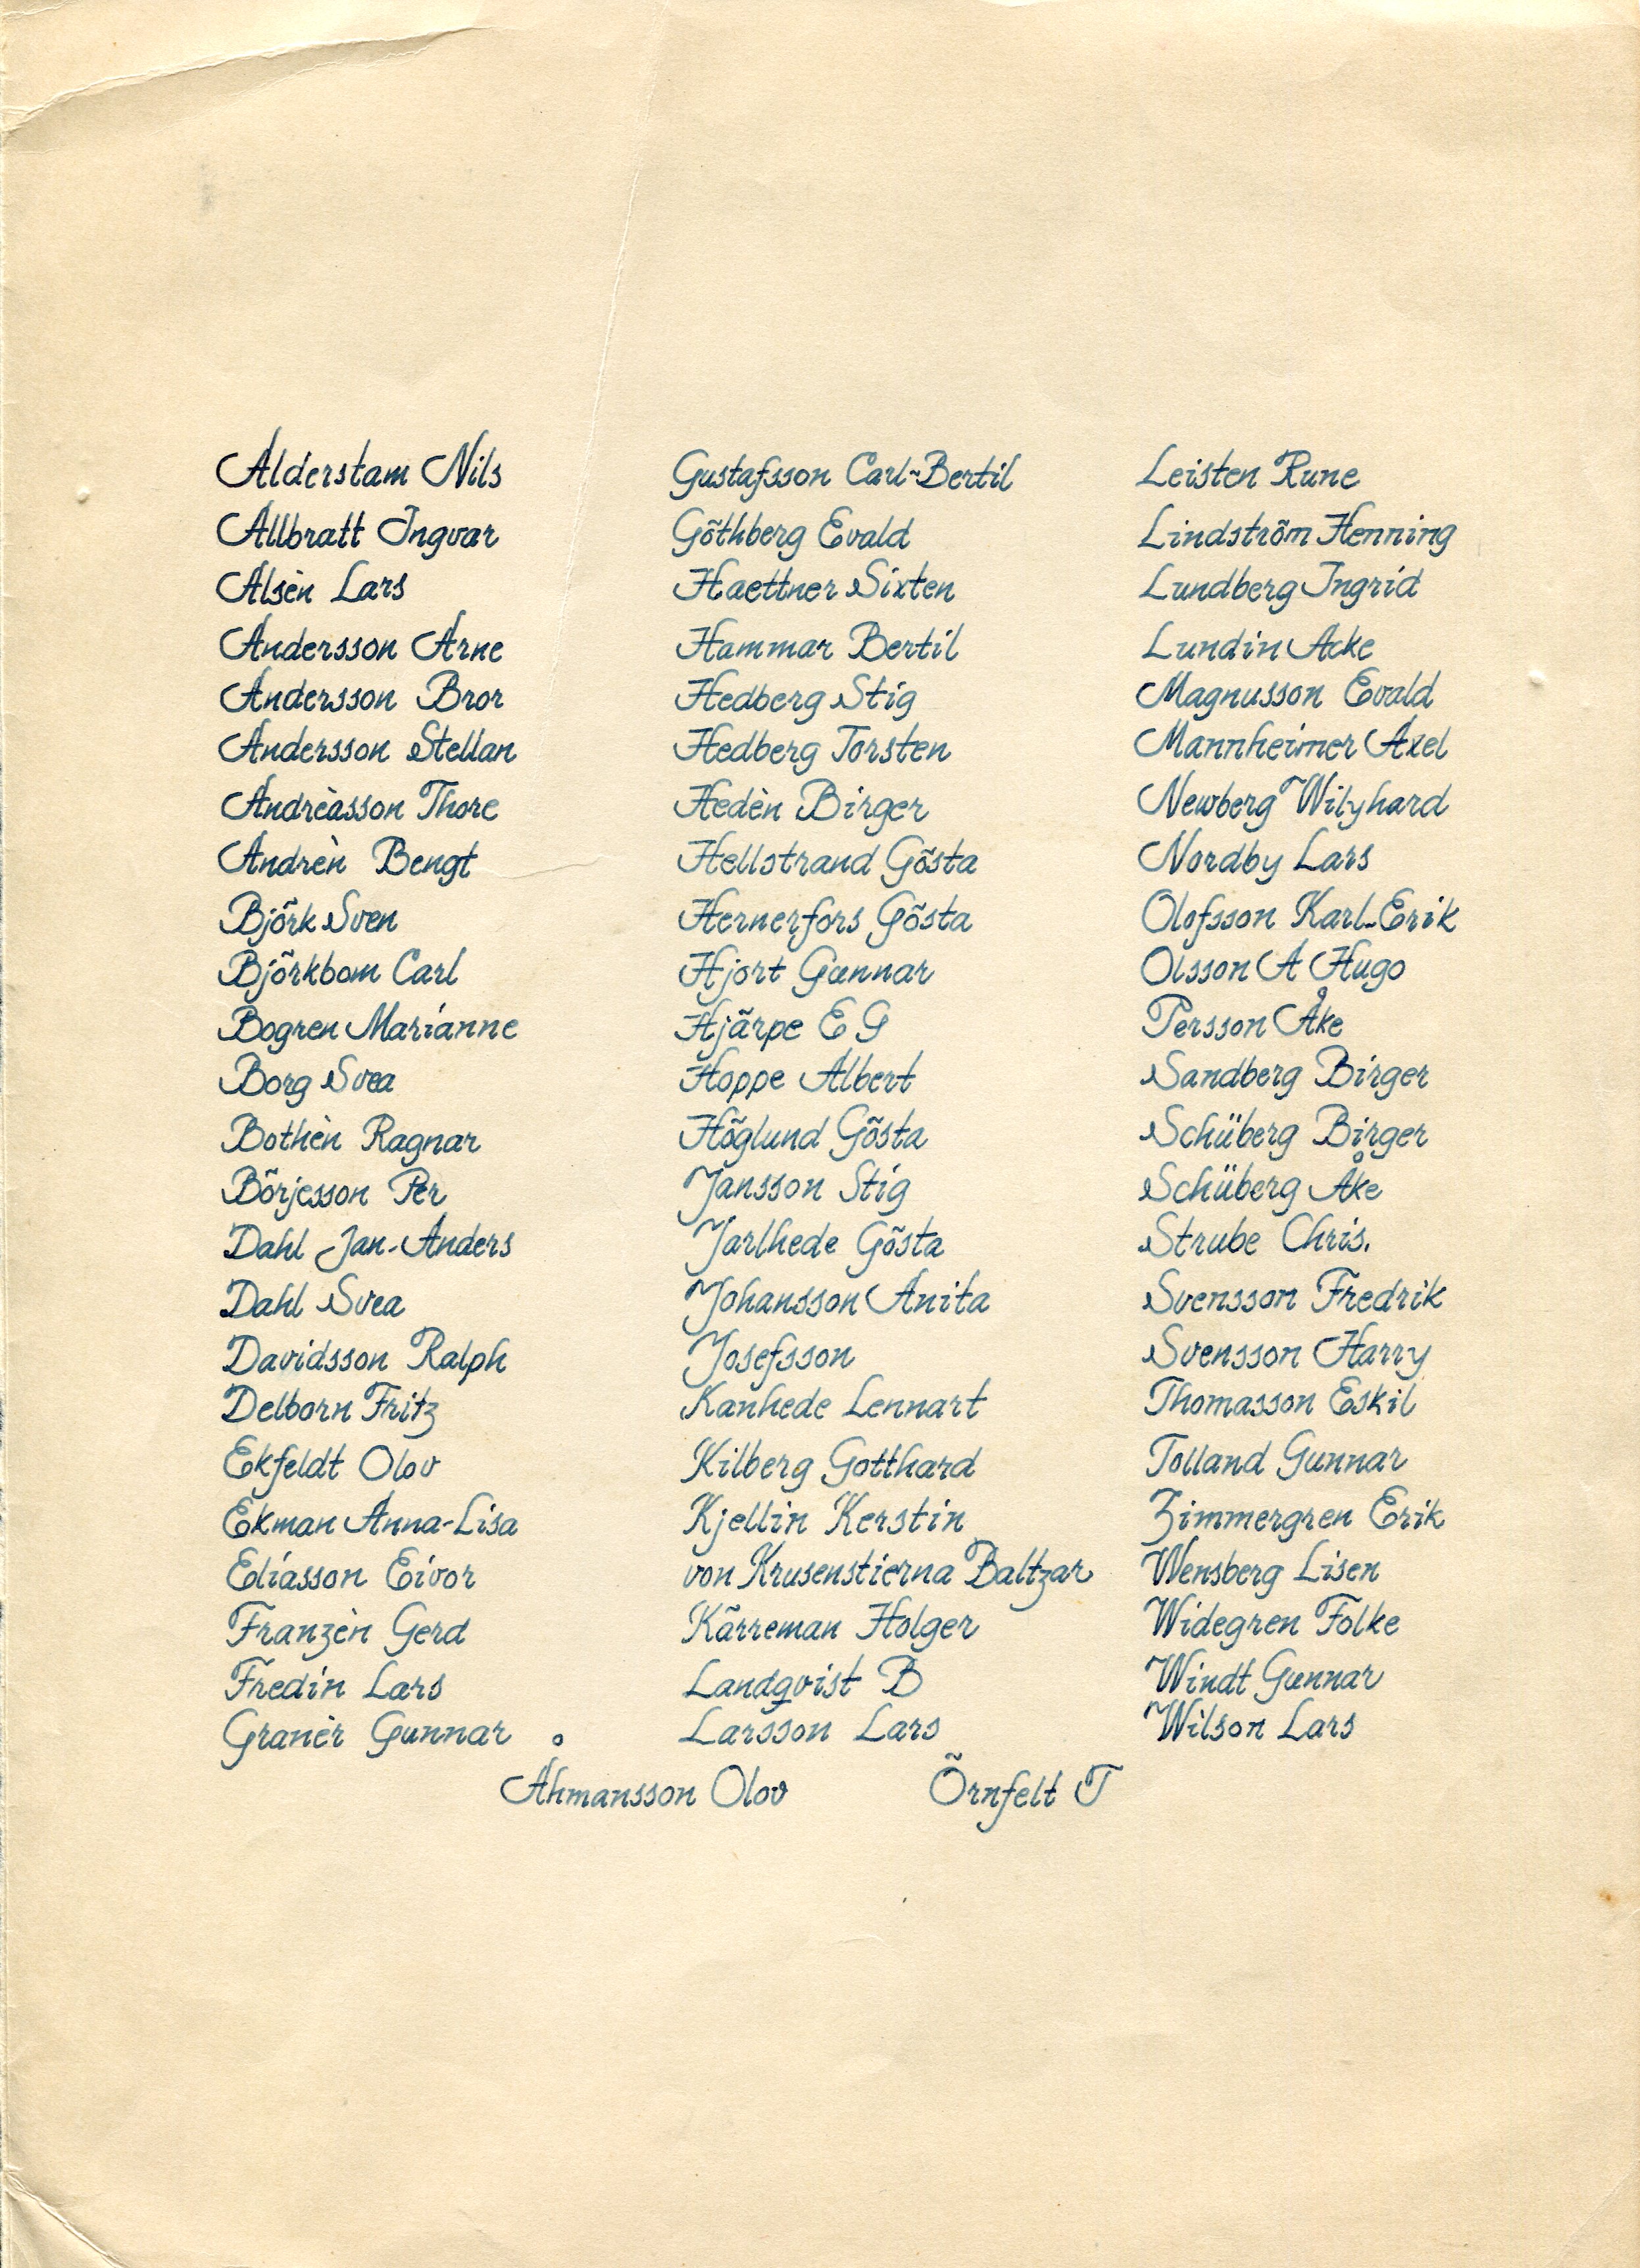 Alderstam Nils
Allbratt Ingvar
Alsèn Lars
Andersson Arne
Andersson Bror
Andersson Stellan
Andrèasson Thore
Andrèn Bengt
Björk Sven
Björkbom Carl
Bogren Marianne
Borg Svea
Bothèn Ragnar
Börjesson Per
Dahl Jan-Anders
Dahl Svea
Davidsson Ralph
Delborn Fritz
Ekfeldt Olov
Ekman Anna-Lisa
Eliasson Eivor
Franzèn Gerd
Fredin Lars
Granèr Gunnar
Gustafsson Carl-Bertil
Göthberg Evald
Haettner Sixten
Hammar Bertil
Hedberg Stig
Hedberg Torsten
Hedèn Birger
Hellstrand Gösta
Hernerfors Gösta
Hjort Gunnar
Hjärpe E G
Hoppe Albert
Höglund Gösta
Jansson Stig
Jarlhede Gösta
Johansson Anita
Josefsson
Kanhede Lennart
Kilberg Gotthard
Kjellin Kerstin
von Krusenstierna Baltzar
Kärreman Holger
Landqvist B
Larsson Lars
Leisten Rune
Lindström Henning
Lundberg Ingrid
Lundin Acke
Magnusson Evald
Mannheimer Axel
Newberg Wilyhard
Nordby Lars
Olofsson Karl-Erik
Olsson A Hugo
Persson Åke
Sandberg Birger
Schüberg Birger
Schüberg Åke
Strube Chris.
Svensson Fredrik
Svensson Harry
Thomasson Eskil
Tolland Gunnar
Zimmergren Erik
Wensberg Lisen
Widegren Folke
Windt Gunnar
Wilson Lars
Åhmansson Olov
Örnfelt T